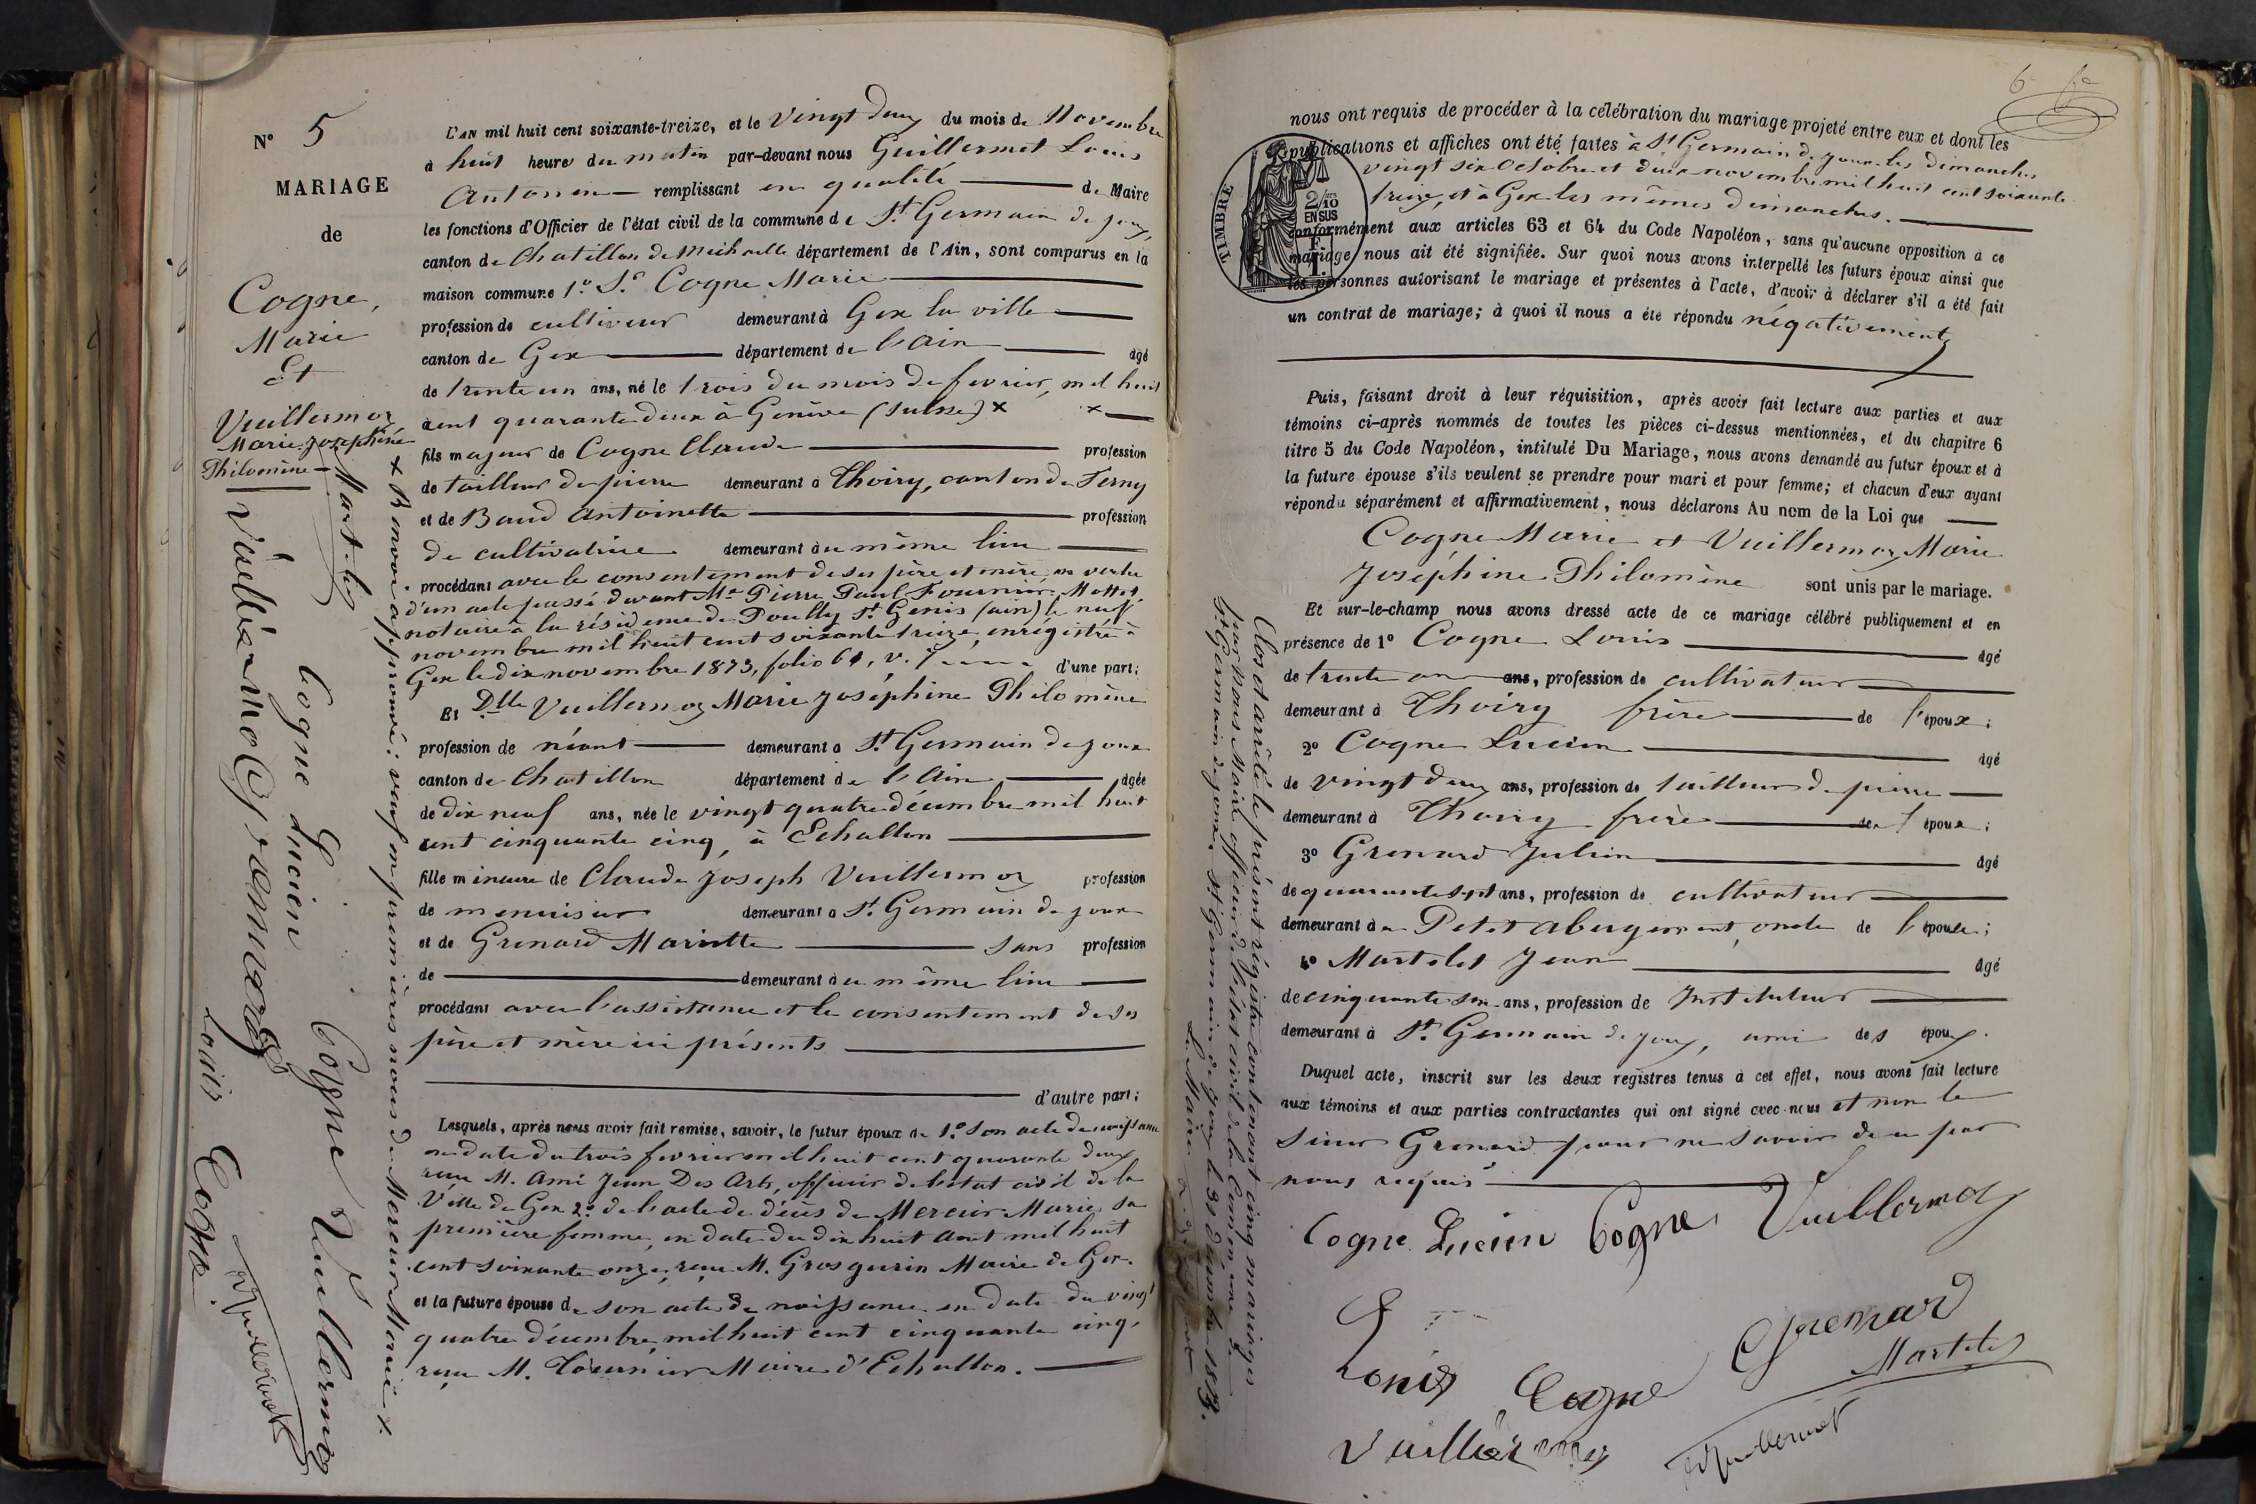 N° 5
MARIAGE
de
Cogne,
Marie
Et
Vuillermoz
Marie Joséphine
Philomène
L'AN mil huit cent soixante-treize, et le vingt deux du mois de Novembre
à huit heures du matin par-devant nous Guillermet Louis
Antonin remplissant en qualité de Maire
les fonctions d'Officier de l'état civil de la commune de St Germain de Joux,
canton de Chatillon de Michaille département de l'Ain, sont comparus en la
maison commune 1° Sr Cogne Marie
profession de cultiveur demeurant à Gex la ville
canton de Gex département de l'ain âgé
de trente un ans, né le trois du mois de fevrier, mil huit
cent quarante deux à Genève (Suisse) x x
fils majeur de Cogne Claude profession
de tailleur de pierre demeurant à Thoiry, canton de Ferney
et de Baud Antoinette profession
de cultivatrice demeurant au même lieu
procédant avec le consentement de ses père et mère en vertu
d'un acte passé devant Me Pierre Paul Fournier Mottet
notaire à la résidence de Pouilly St Genis (ain) le neuf
novembre mil huit cent soixante treize, enrégistré à
Gex le dix novembre 1873, folio 61, v. 7 d'une part;
Et Dlle Vuillermoz Marie Joséphine Philomène
profession de néant demeurant à St Germain de joux
canton de Chatillon département de l'Ain âgée
de dix neuf ans, née le vingt quatre décembre mil huit
cent cinquante cinq, à Echallon
fille mineure de Claude Joseph Vuillermoz profession
de menuisier demeurant à St Germain de joux
et de Grenard Mariette sans profession
de demeurant au même lieu
procédant avec l'assistance et le consentement de ses
père et mère ici présents
d'autre part;
Lesquels, après nous avoir fait remise, savoir, le futur époux de 1° Son acte de naissance
en date du trois fevrier mil huit cent quarante deux
reçu M. Ami Jean Des Arts, officier de l'etat civil de la
Ville de Gen 2° de l'acte de décès de Mercier Marie sa
première femme, en date du dix huit Aout mil huit
cent soixante onze, reçu M. Grosgurin Maire de Gex.
et la future épouse de son acte de naissance en date du vingt
quatre décembre mil huit cent cinquante cinq,
reçu M. Tournier Maire d'Echallon.
x Renvoi approuvé: veuf en premières noces de Mercier Marie x.
Martelet
Vuillermoz
Grenard
Cogne Lucien
Cogne Vuillermoz
Louis Cogne
Guillermet
6
nous ont requis de procéder à la célébration du mariage projeté entre eux et dont les
publications et affiches ont été faites à St Germain de joux les dimanches
vingt six Octobre et deux novembre mil huit cent soixante
treize, et à Gex les mêmes dimanches.
TIMBRE
2/10
EN SUS
conformément aux articles 63 et 64 du Code Napoléon, sans qu'aucune opposition à ce
mariage nous ait été signifiée. Sur quoi nous avons interpellé les futurs époux ainsi que
les personnes autorisant le mariage et présentes à l'acte, d'avoir à déclarer s'il a été fait
un contrat de mariage; à quoi il nous a été répondu négativement
Puis, faisant droit à leur réquisition, après avoir fait lecture aux parties et aux
témoins ci-après nommés de toutes les pièces ci-dessus mentionnées, et du chapitre 6
titre 5 du Code Napoléon, intitulé Du Mariage, nous avons demandé au futur époux et à
la future épouse s'ils veulent se prendre pour mari et pour femme; et chacun d'eux ayant
répondu séparément et affirmativement, nous déclarons Au nom de la Loi que
Cogne Marie et Vuillermoz Marie
Joséphine Philomène sont unis par le mariage.
Et sur-le-champ nous avons dressé acte de ce mariage célébré publiquement et en
présence de 1° Cogne Louis âgé
de trente ans, profession de cultivateur
demeurant à Thoiry frère de l'époux;
2° Cogne Lucien âgé
de vingt deux ans, profession de tailleur de pierre
demeurant à Thoiry frère de l'époux;
3° Grenard Julien âgé
de quarante sept ans, profession de cultivateur
demeurant au Petit abergement, oncle de l'épouse;
4° Martelet Jean âgé
de cinquante six ans, profession de Instituteur
demeurant à St Germain de Joux, ami des époux.
Duquel acte, inscrit sur les deux registres tenus à cet effet, nous avons fait lecture
aux témoins et aux parties contractantes qui ont signé avec nous et non le
sieur Grenard pour ne savoir de ce par
nous requis
Cogne Lucien Cogne Vuillermoz
Louis Cogne Grenard
Martelet
Vuillermoz Guillermet
Clos et arrêté le présent régistre contenant cinq mariages
par nous Maire officier de l'état civil de la Commune de
St Germain de joux St Germain de joux le 31 décembre 1873.
Le Maire